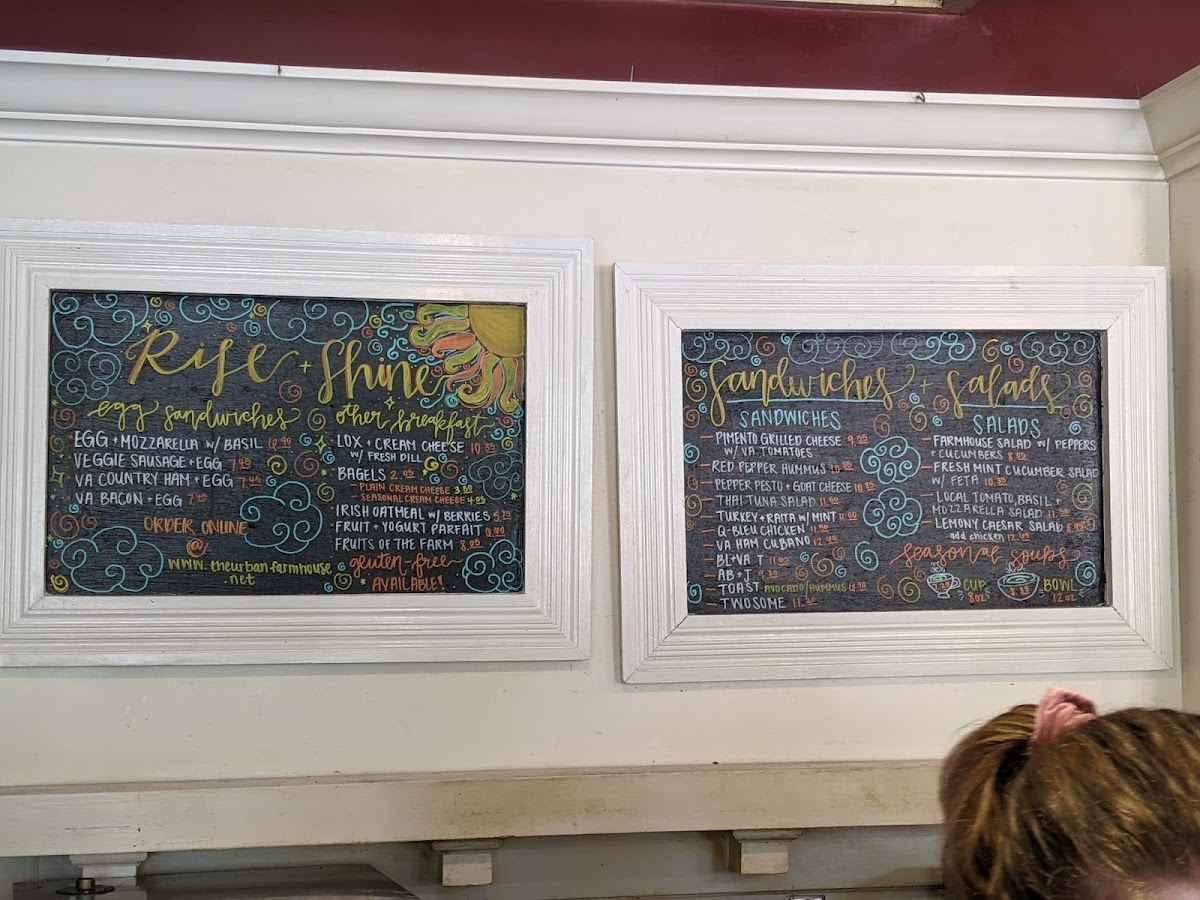 Rise + Shine
egg sandwiches
EGG + MOZZARELLA W/ BASIL 6.90
VEGGIE SAUSAGE + EGG 7.40
VA COUNTRY HAM + EGG 7.45
VA BACON + EGG 7.40
ORDER ONLINE
@
www.theurbanfarmhouse.
net
other breakfast
LOX + CREAM CHEESE 10.35
W/ FRESH DILL
BAGELS 2.05
- PLAIN CREAM CHEESE 3.50
- SEASONAL CREAM CHEESE 4.05
IRISH OATMEAL W/ BERRIES 5.79
FRUIT + YOGURT PARFAIT
FRUITS OF THE FARM
gluten-free
AVAILABLE!
Sandwiches + Salads
SANDWICHES
- PIMENTO GRILLED CHEESE 9.95
W/ VA TOMATOES
- RED PEPPER HUMMUS
- PEPPER PESTO + GOAT CHEESE 10.35
- THAI TUNA SALAD
- TURKEY + RAITA W/ MINT
- Q-BLEU CHICKEN
- VA HAM CUBANO 12.40
- BL + VA T
- AB + J
- TOAST AVOCADO/HUMMUS
- TWOSOME
SALADS
- FARMHOUSE SALAD W/ PEPPERS
+ CUCUMBERS
- FRESH MINT CUCUMBER SALAD
W/ FETA 10.35
- LOCAL TOMATO, BASIL +
MOZZARELLA SALAD
- LEMONY CAESAR SALAD
add chicken
Seasonal Soups
CUP
8oz
BOWL
12oz